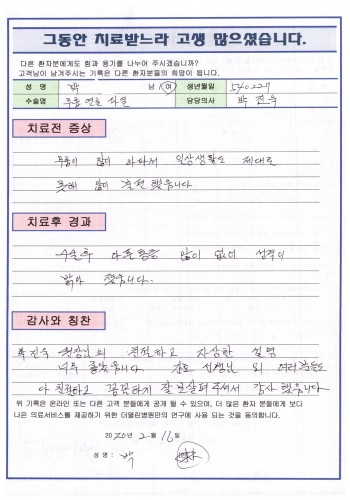 그동안 치료받느라 고생 많으셨습니다.
다른 환자분에게도 힘과 용기를 나누어 주시겠습니까?
고객님이 남겨주시는 기록은 다른 환자분들의 희망이 됩니다.
성 명 박 남 / 여 생년월일 540227
수술명 담당의사 박진욱
치료전 증상
많이 아파서 일상생활도 제대로
못해 많이 했습니다.
치료후 경과
수술후 많이 없이 성격이
밝아 졌습니다.
감사와 칭찬
박진욱 원장님의 친절하고 자상한 설명
너무 좋았습니다 간호 선생님 외 여러분들도
다 친절하고 꼼꼼하게 잘 보살펴 주셔서 감사 했습니다
위 기록은 온라인 또는 다른 고객 분들에게 공개 될 수 있으며, 더 많은 환자 분들에게 보다
나은 의료서비스를 제공하기 위한 더열린병원만의 연구에 사용 되는 것을 동의합니다.
2020년 2월 16일
성명 : 박